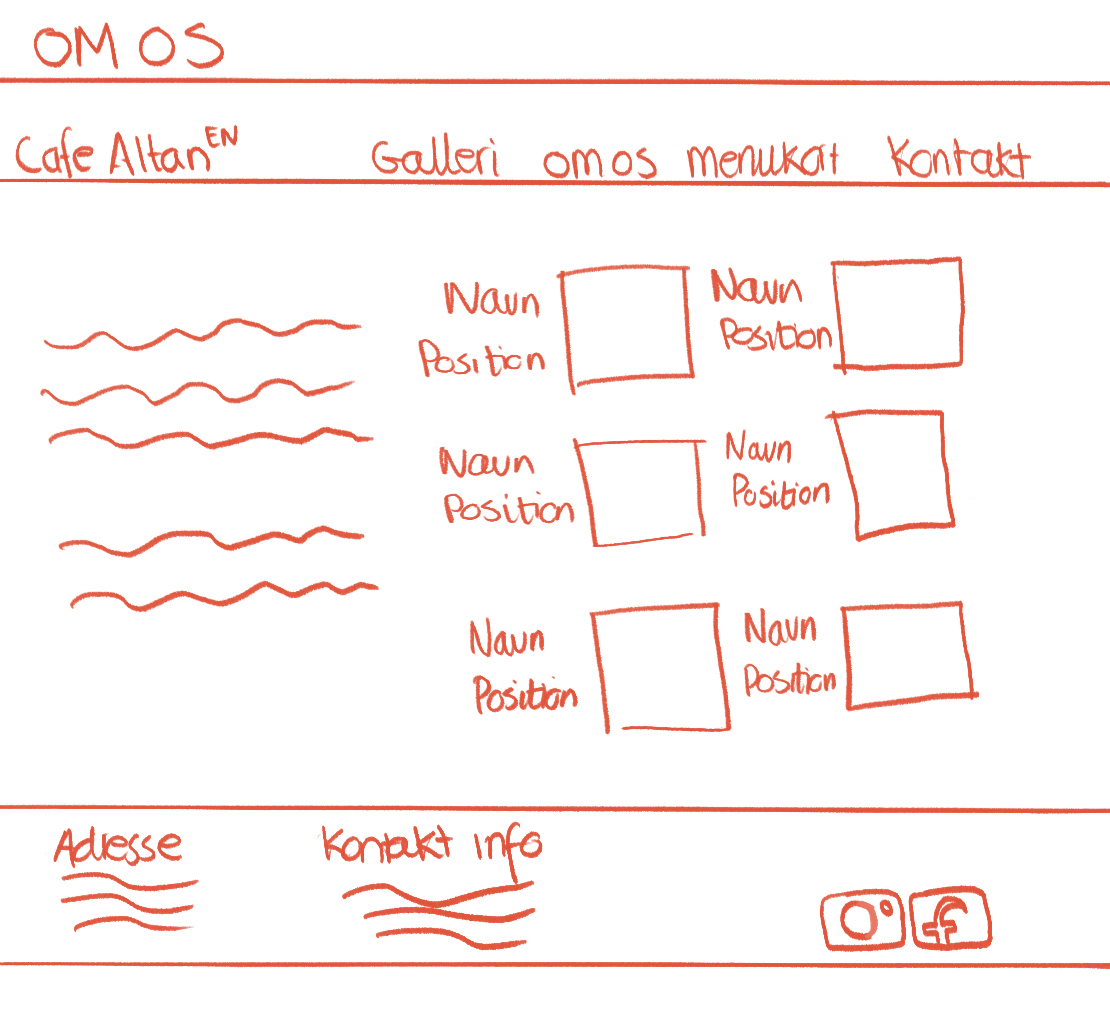 OM OS
Cafe Altan EN Galleri om os menukort Kontakt
Navn
Position
Navn
Position
Navn
Position
Navn
Position
Navn
Position
Navn
Position
Adresse
Kontakt info